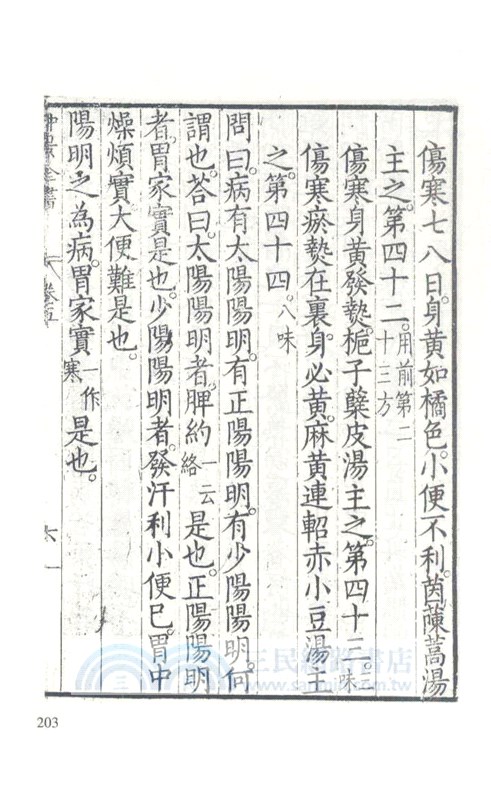 傷寒七八日。身黃如橘色。小便不利。茵蔯蒿湯
主之。第四十二。用前第二十三方
傷寒身黃發熱。梔子蘗皮湯主之。第四十三。三味
傷寒瘀熱在裏。身必黃。麻黃連軺赤小豆湯主
之。第四十四。八味
問曰。病有太陽陽明。有正陽陽明。有少陽陽明。何
謂也。荅曰。太陽陽明者。脾約一云絡是也。正陽陽明
者。胃家實是也。少陽陽明者。發汗利小便已。胃中
燥煩實大便難是也。
陽明之為病。胃家實一作寒是也。
三民網路書店
www.sanmin.com.tw
203